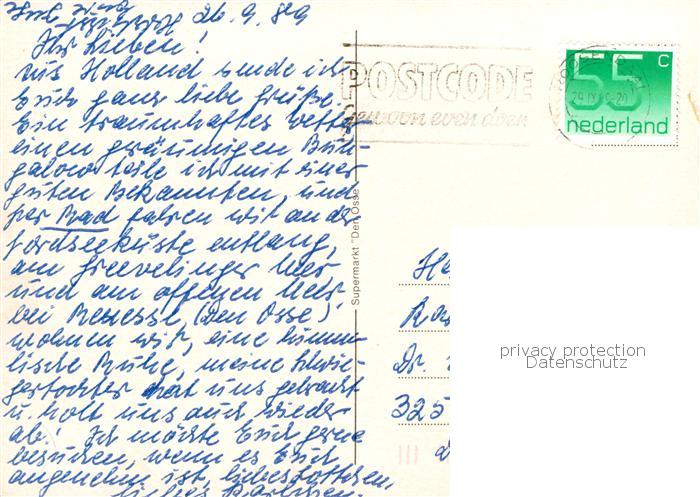 26.9.89
Ihr Lieben!
Aus Holland sende ich
Euch ganz liebe Grüße.
Ein traumhaftes Wetter,
einen geräumigen Bun-
galow teile ich mit einer
guten Bekannten, und
per Rad fahren wir an der
Nordseeküste entlang,
am Greevelinger Meer
und am offenen Meer
bei Renesse, (Den Osse)
wohnen wir, eine himm-
lische Ruhe, meine Schwie-
gertochter hat uns gebracht
u. holt uns auch wieder
ab! Ich möchte Euch gerne
besuchen, wenn es Euch
angenehm ist,
POSTCODE
gewoon even doen
55 c
nederland
Supermarkt "Den Osse"
Dr.
325
privacy protection
Datenschutz